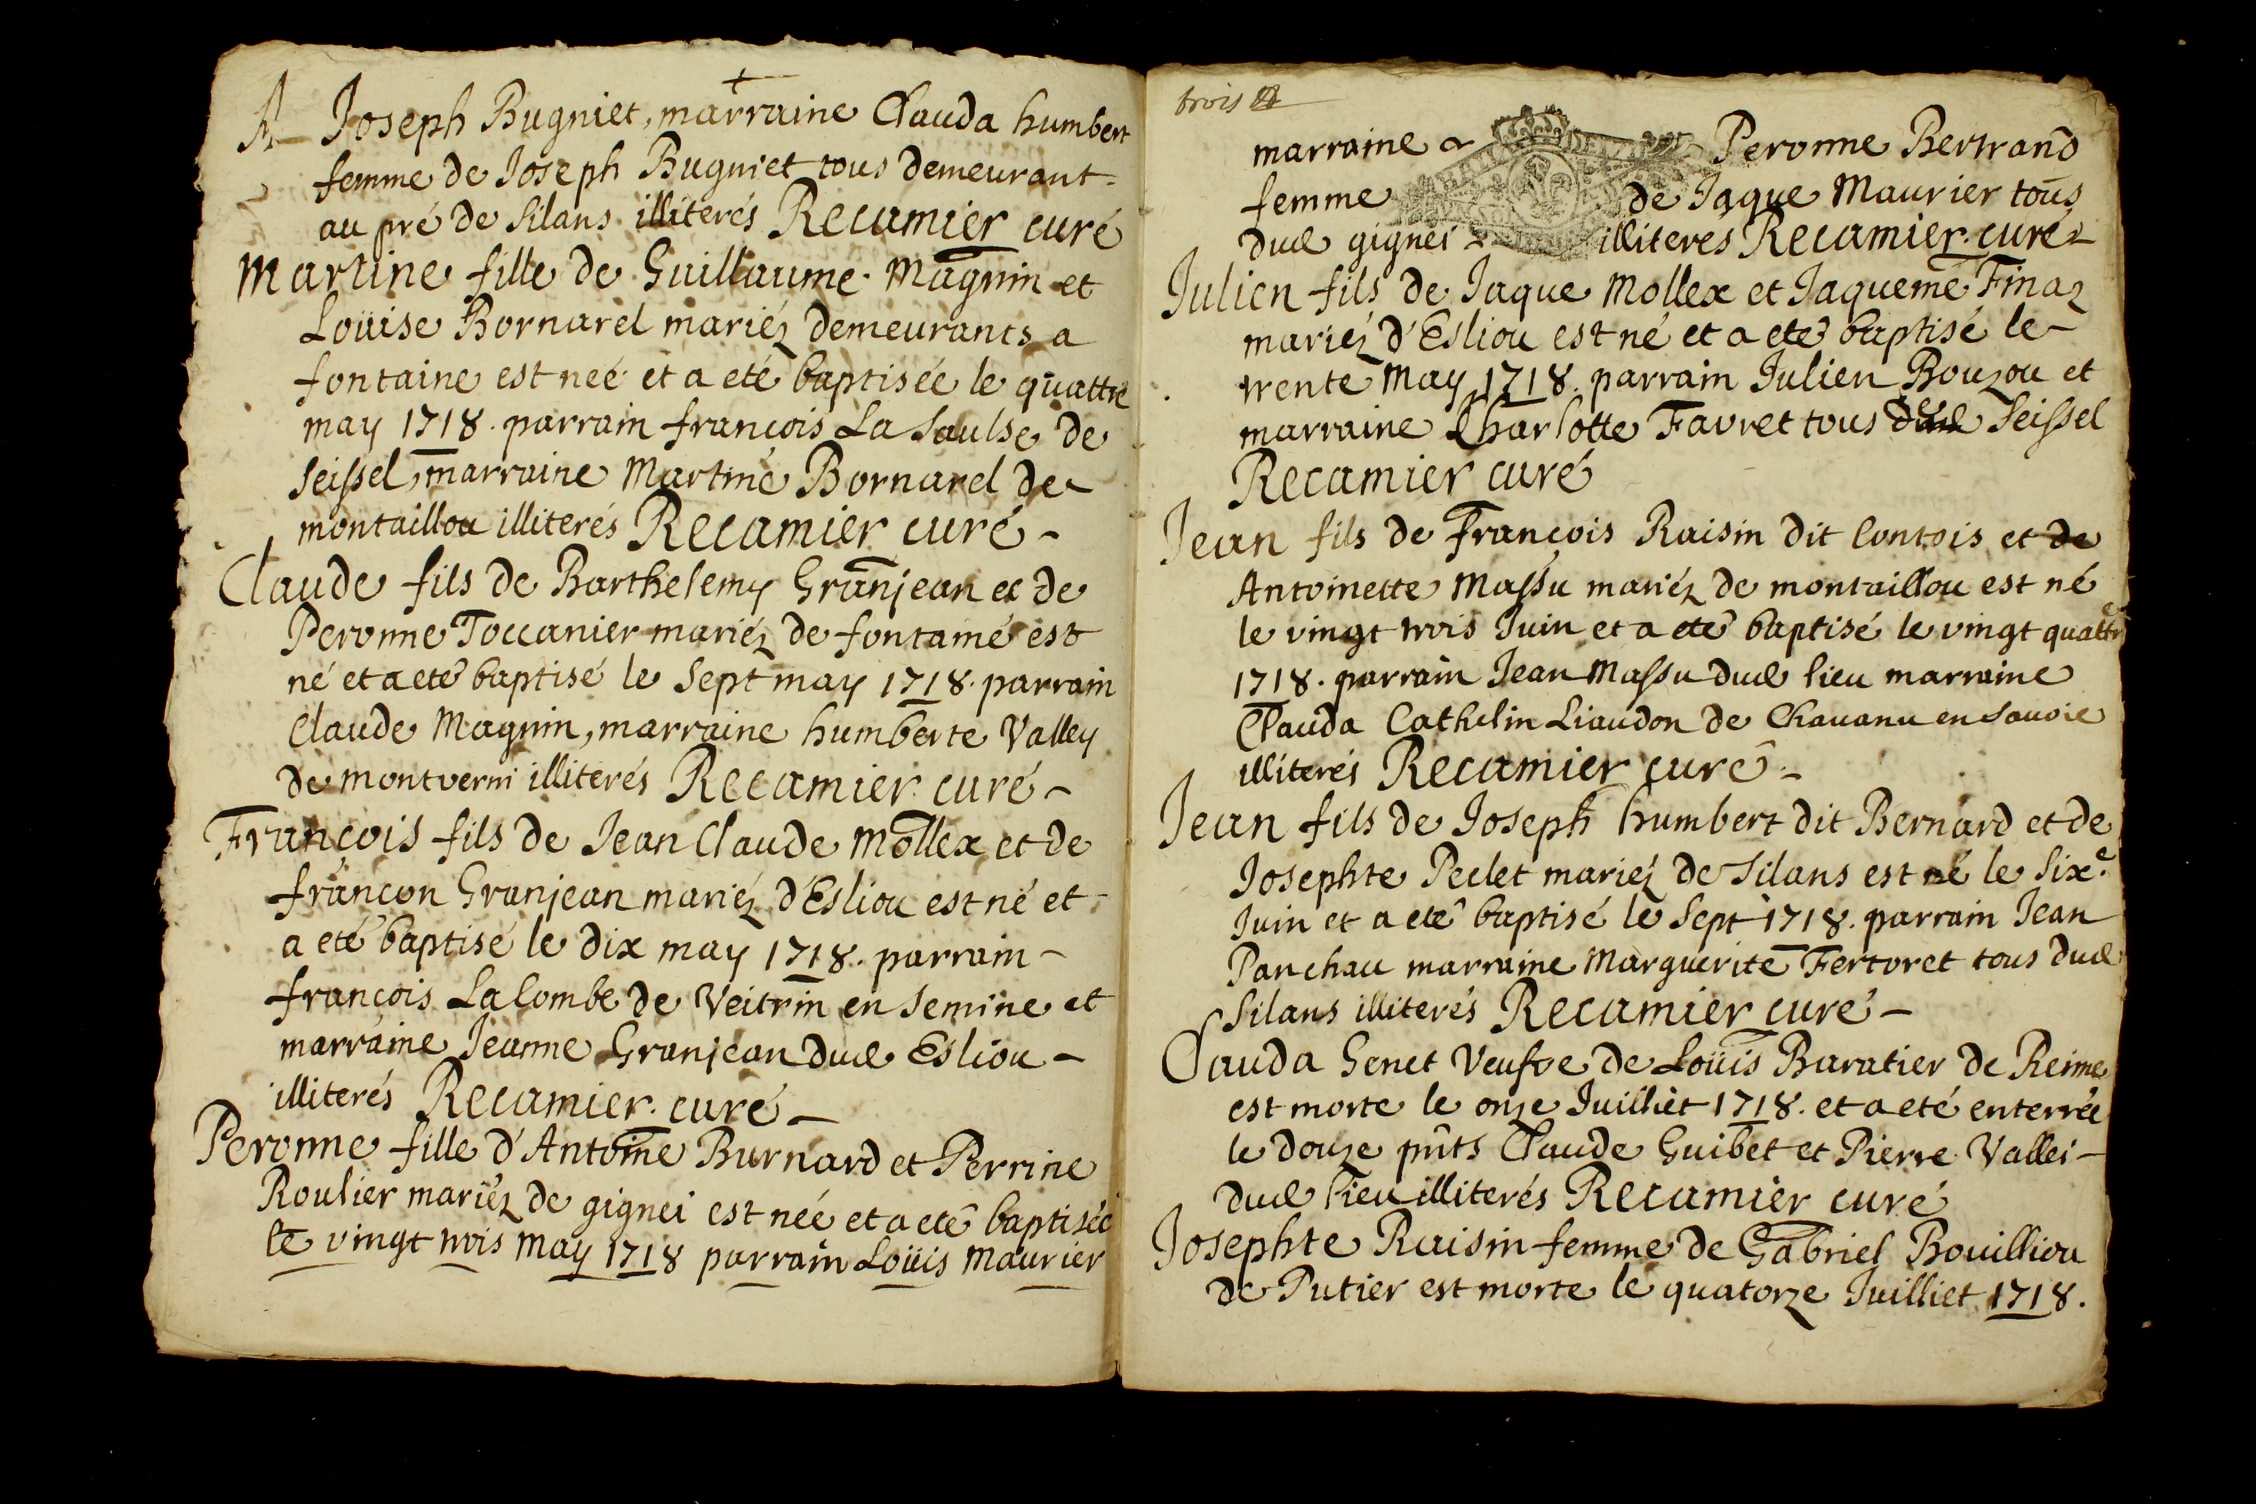 Joseph Bugniet, marraine Clauda humbert
femme de Joseph Bugniet tous demeurant
au pré de Silans illiterés Recamier curé
Martine fille de Guillaume Magnin et
Loüise Bornarel mariéz demeurants a
fontaine est neé et a eté baptisée le quattre
may 1718. parrain françois La Saulse de
Seissel, marraine Martine Bornarel de
montaillou illiterés Recamier curé
Claude fils de Barthelemy Granjean et de
Peronne Toccanier mariéz de fontaine est
né et a eté baptisé le Sept may 1718. parrain
Claude Magnin, marraine humberte Valley
de montverni illiterés Recamier curé
François fils de Jean Claude Mollex et de
françon Granjean mariéz d'Esliou est né et
a eté baptisé le dix may 1718. parrain
françois La Combe de Veitrin en Semine et
marraine Jeanne Granjean dud Esliou
illiterés Recamier curé
Peronne fille d'Antoine Burnard et Perrine
Roulier mariéz de gignei est née et a eté baptisée
le vingt trois May 1718 parrain Loüis Maurier
trois
marraine Peronne Bertrand
femme de Jaque Maurier tous
dud gignei illiteres Recamier curé
Julien fils de Jaque Mollex et Jaqueme Finaz
mariéz d'Esliou est né et a eté baptisé le
trente May 1718. parrain Julien Bouzou et
marraine Charlotte Favret tous de Seissel
Recamier curé
Jean fils de François Raisin dit Contois et de
Antoinette Massu mariéz de montaillou est né
le vingt trois Juin et a eté baptisé le vingt quattre
1718. parrain Jean Massu dud lieu marraine
Clauda Cathelin Liaudon de Chavanu en Savoie
illiterés Recamier curé
Jean fils de Joseph humbert dit Bernard et de
Josephte Peclet mariéz de Silans est né le Sixe
Juin et a eté baptisé le Sept 1718. parrain Jean
Panchau marraine Marguerite Fertoret tous dud
Silans illiterés Recamier curé
Clauda Genet Veufve de Loüis Baratier de Reime
est morte le onze Juilliet 1718. et a eté enterrée
le douze pnts Claude Guibet et Pierre Vallei
dud lieu illiterés Recamier curé
Josephte Raisin femme de Gabriel Bouilliou
de Putier est morte le quatorze Juilliet 1718.